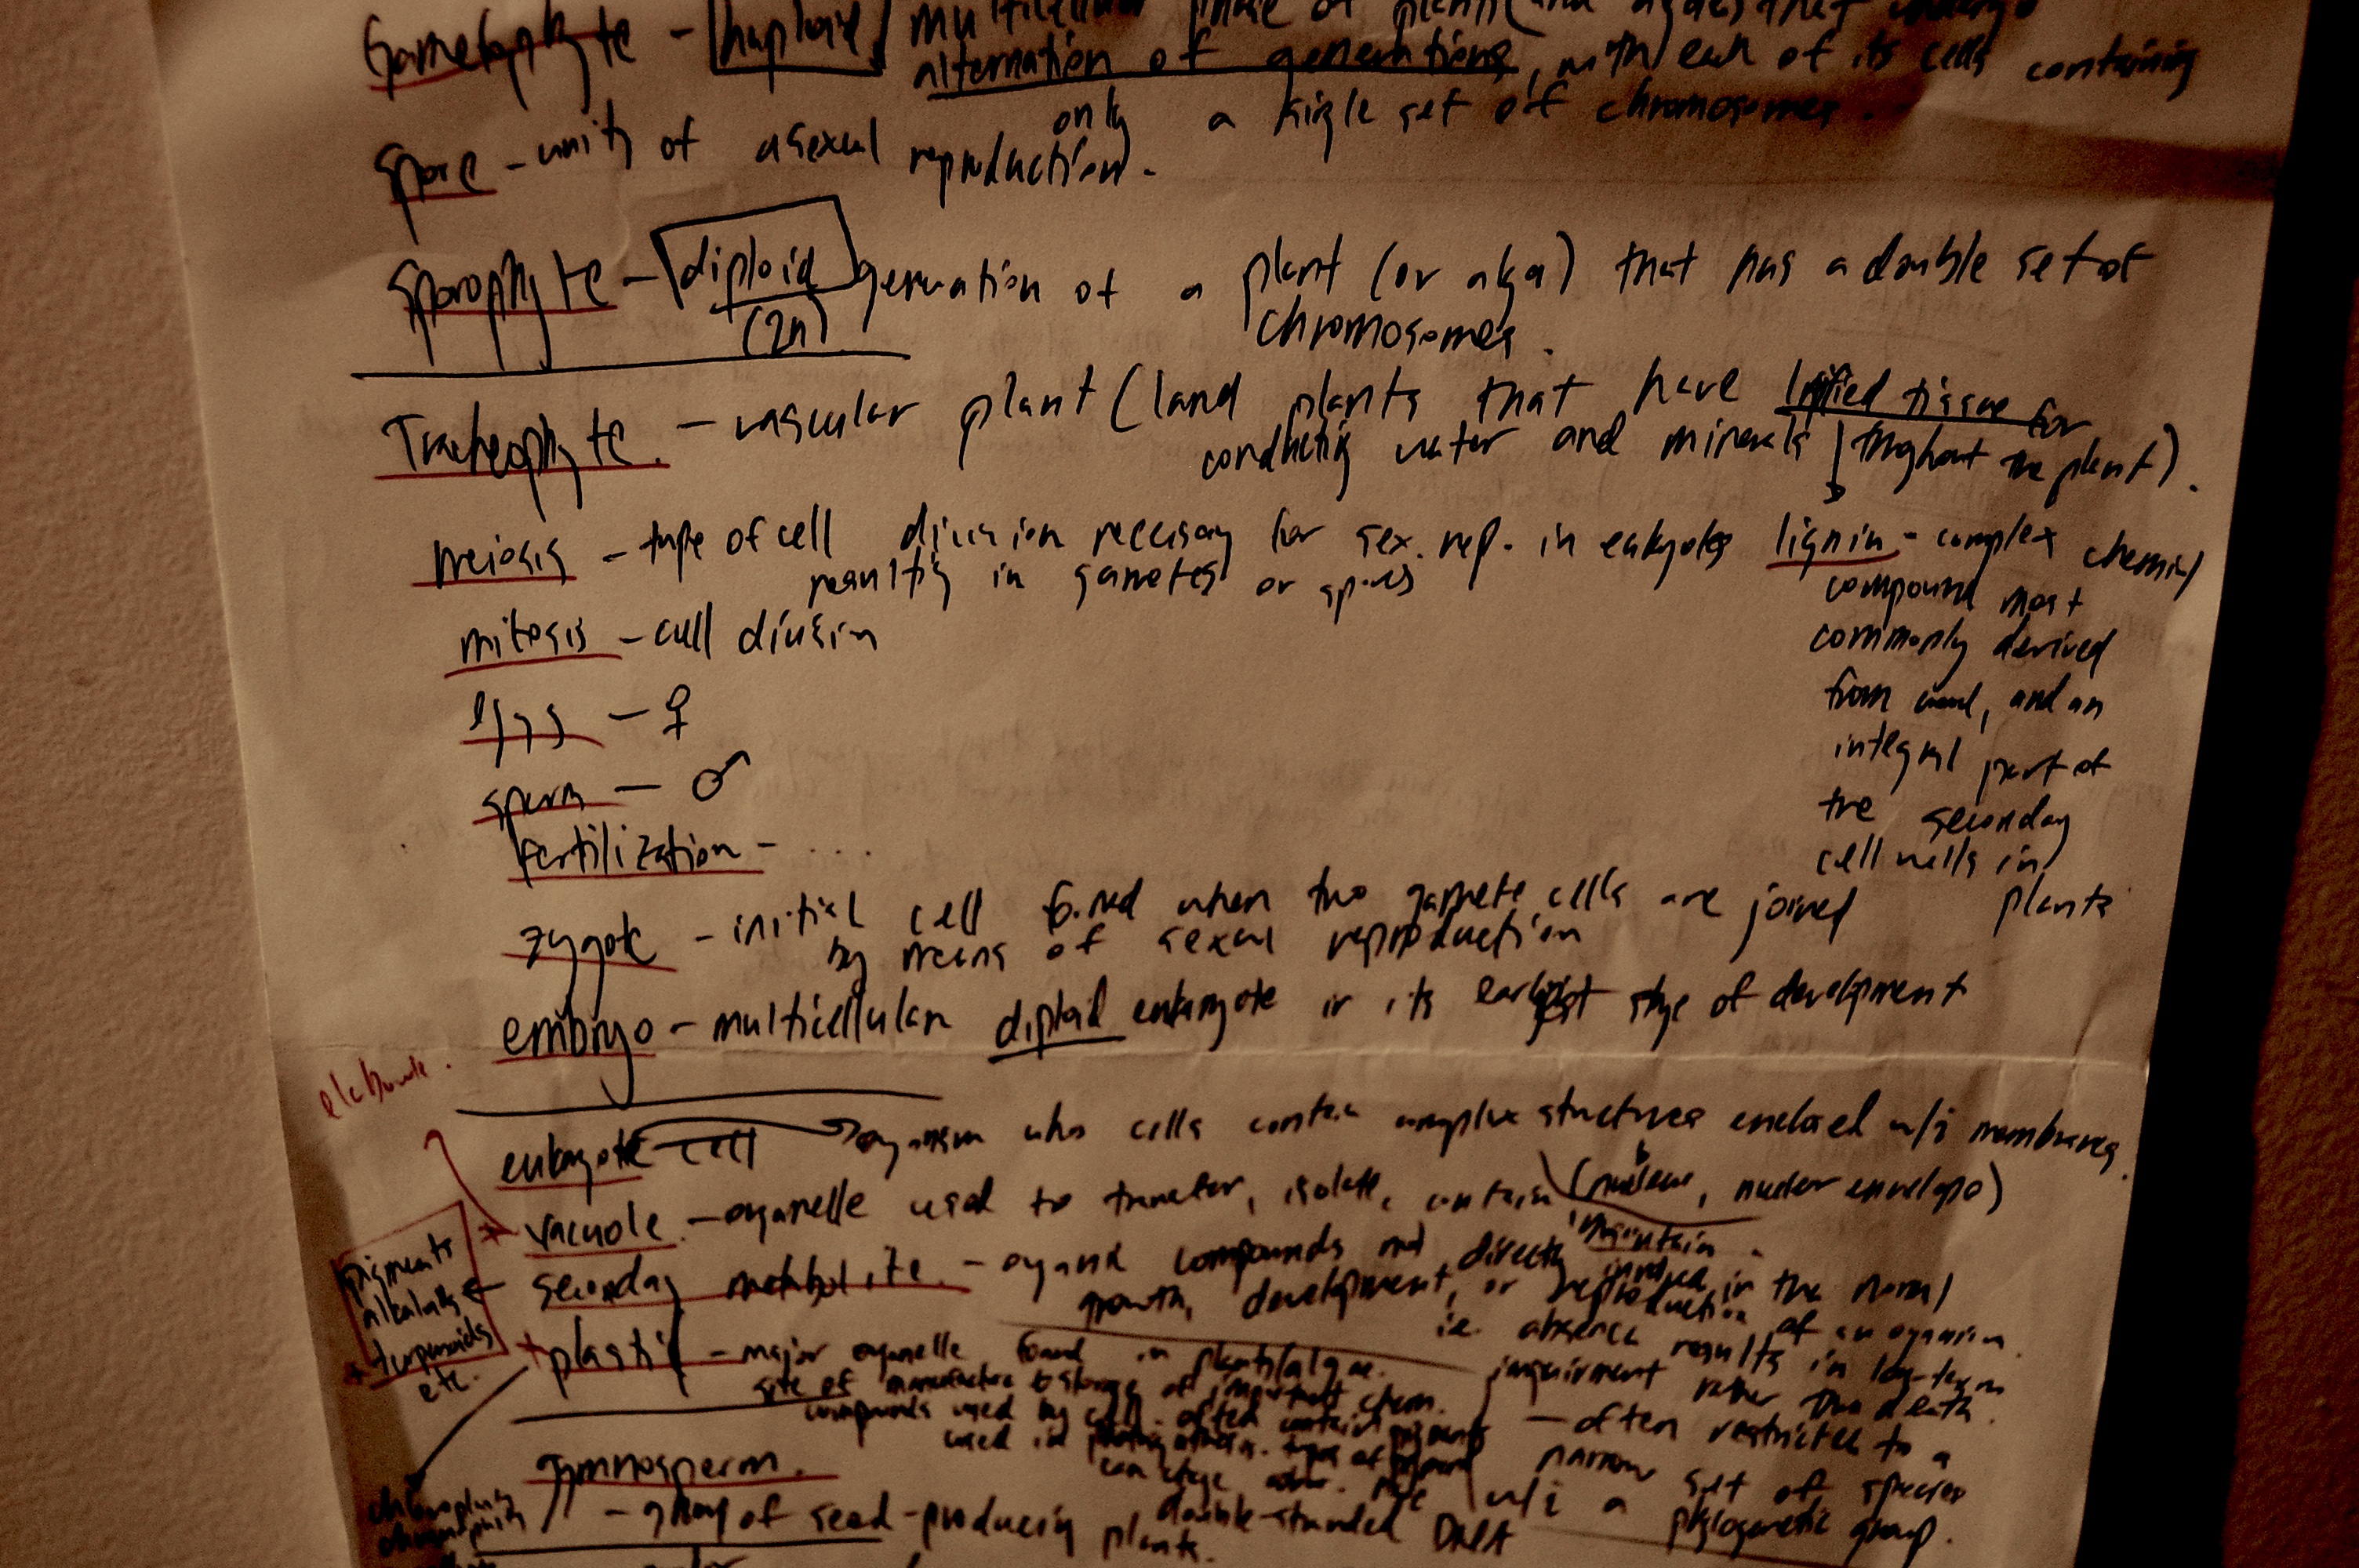 Gametophyte - haploid multicellular phase of plants (and algae) that undergo
alternation of generations, with each of its cells containing
only a single set of chromosomes.
Spore - unit of asexual reproduction.
Sporophyte - diploid generation of a plant (or alga) that has a double set of
(2n) chromosomes.
Tracheophyte. - vascular plant (land plants that have lignified tissue for
conducting water and minerals throughout the plant).
meiosis - type of cell division necessary for sex. rep. in eukaryotes
resulting in gametes or spores
lignin - complex chemical
compound most
commonly derived
from wood, and an
integral part of
the secondary
cell walls in
plants
mitosis - cell division
egg - ♀
sperm - ♂
fertilization - ....
zygote - initial cell formed when two gamete cells are joined
by means of sexual reproduction
embryo - multicellular diploid eukaryote in its earliest stage of development
elaborate.
eukaryote cell organism who cells contain complex structures enclosed w/i membranes.
(nucleus, nuclear envelope)
vacuole - organelle used to transfer, isolate, contain, maintain.
secondary metabolite. - organic compounds not directly involved in the normal
growth, development, or reproduction of an organism.
i.e. absence results in long-term
impairment rather than death.
- often restricted to a
narrow set of species
w/i a phylogenetic group.
pigments
alkaloids
+ terpenoids
etc.
+ plastid - major organelle found in plants/algae.
site of manufacture & storage of important chem.
compounds used by cell. often contain pigments
used in photosynthesis. types of pigment
can change
double-stranded DNA
gymnosperm.
- group of seed-producing plants.